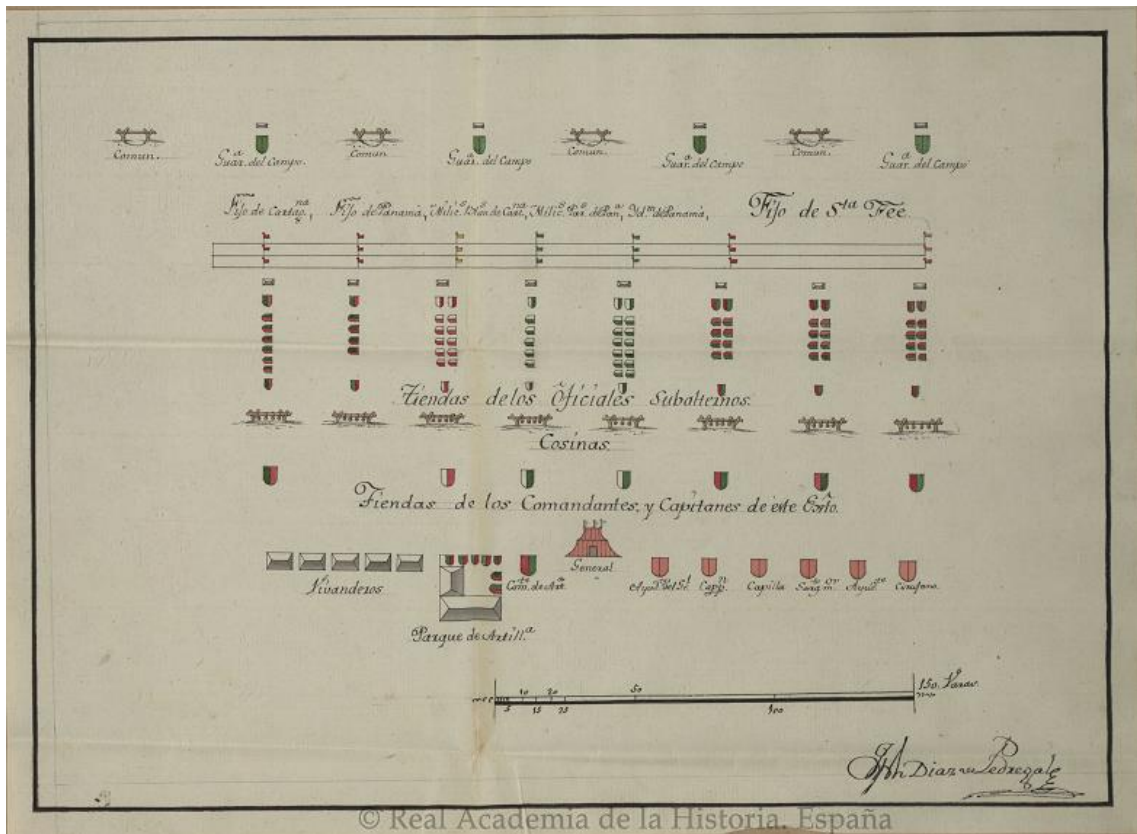 Comun. Guar.ª del Campo. Comun. Guar.ª del Campo Comun. Guar.ª del Campo Comun. Guar.ª del Campo
Fijo de Cartag.na, Fijo de Panamá, Milic.s de Cart.na, Milic.s Par.s de Pan.a, Yd.m de Panamá, Fijo de S.ta Fee
Tiendas de los Oficiales Subalternos.
Cosinas.
Tiendas de los Comandantes, y Capitanes de este Exto.
General
Vivanderos Com.te de Art.a Ayud.te del Gl. Capp.n Capilla Sarg.to m.or Ayud.te Cirujano
Parque de Artill.ª
10 20 50 150 Varas.
5 15 25 100
Diaz Pedregal
© Real Academia de la Historia. España